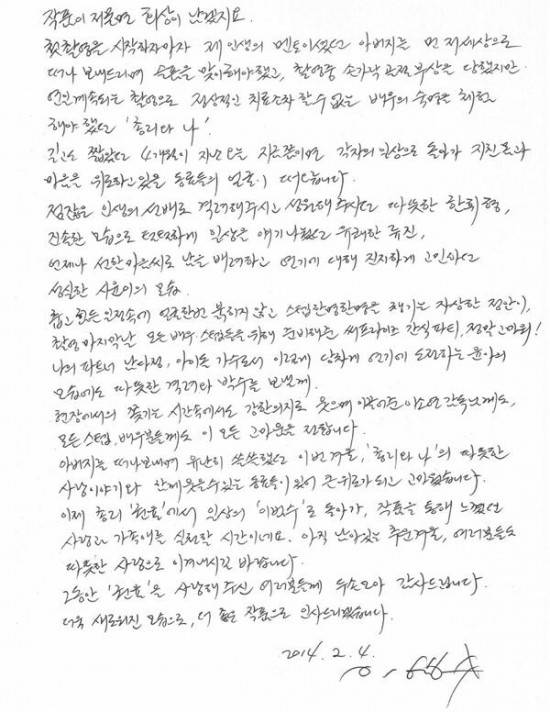 작품이 저물면 화상이 난겠지요.
첫촬영을 시작하자마자 제 인생의 멘토이셨던 아버지를 먼저세상으로
떠나 보내드리며 슬픔을 맞이해야했고, 촬영중 손가락 골절 부상을 당했지만
연일계속되는 촬영으로 정상적인 치료조차 할수없는 배우의 숙명을 체험
해야 했던 '총리와 나'.
길고도 짧았던 4개월이 지난 오늘 지금쯤이면 각자의 일상으로 돌아가 지친 몸과
마음을 위로하고있을 동료들의 얼굴이 떠오릅니다.
점잖은 인생의 선배로 격려해주시고 성원해 주시던 따뜻한 한희 형,
진솔한 모습으로 일상을 얘기나눴던 유쾌한 류진,
언제나 선한마음씨로 남을 배려하고 연기에 대해 진지하게 고민하던
성실한 시윤이의 모습.
춥고 힘든 일정속에 얼굴한번 붉히지 않고 스탭한명한명을 챙기는 자상한 정안이,
촬영 마지막날 모든 배우 스텝들을 위해 준비해준 써프라이즈 간식파티, 정말고마워!
나의 파트너 남다정, 아이돌 가수로서 이렇게 당차게 연기에 도전하는 윤아의
모습에도 따뜻한 격려와 박수를 보낼께.
현장에서의 쫓기는 시간속에서도 강한의지로 웃으며 이끌어준 이소연 감독님께도,
모든스탭, 배우분들께도 이 모든 고마움을 전합니다.
아버지를 떠나보내며 유난히 쓸쓸했던 이번겨울, '총리와 나'의 따뜻한
사랑이야기와 함께웃을수있는 동료들이 있어 큰위로가되고 고마웠습니다.
이제 총리 '권율'에서 일상의 '이범수'로 돌아가, 작품을 통해 느꼈던
사랑과 가족애를 실천할 시간이네요. 아직 남아있는 추운겨울, 여러분들도
따뜻한 사랑으로 이겨내시길 바랍니다.
그동안 '권율'을 사랑해주신 여러분들께 두손모아 감사드립니다.
더욱 새로워진 모습으로, 더 좋은 작품으로 인사드리겠습니다.
2014. 2. 4.